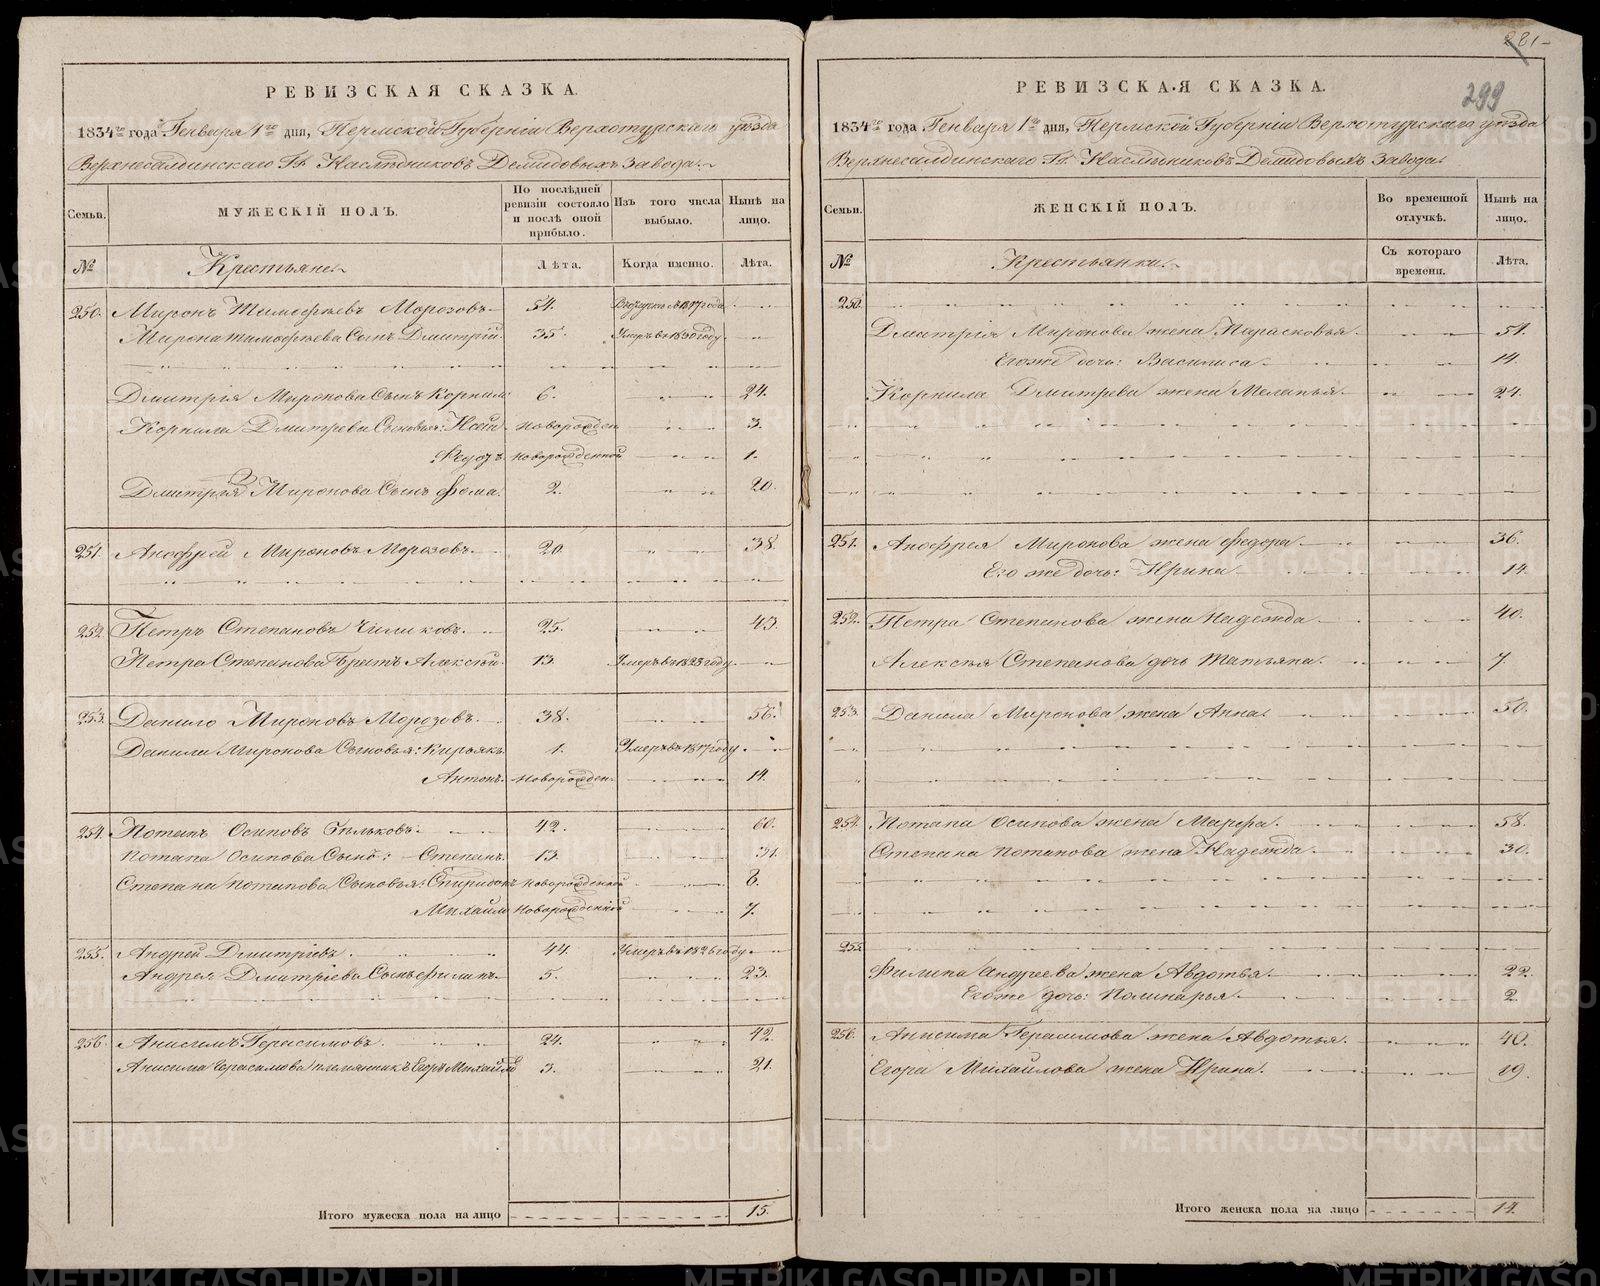 281
299
РЕВИЗСКАЯ СКАЗКА.
1834го года Генваря 1го дня, Пермской Губерніи Верхотурскаго уѣзда
Верхнесалдинскаго Гг. Наслѣдниковъ Демидовыхъ завода.
Семьи.
МУЖЕСКІЙ ПОЛЪ.
По послѣдней ревизіи состояло и послѣ оной прибыло.
Изъ того числа выбыло.
Нынѣ на лицо.
№
Крестьяне.
Лѣта.
Когда именно.
Лѣта.
250. Миронъ Тимофѣевъ Морозовъ 54. 1817 года
Мирона Тимофѣева Сынъ Дмитрій 35. Умеръ въ 1830 году
Дмитрія Миронова Сынъ Корнило 6. 24.
Корнила Дмитрева Сыновья: новорожден 3.
новорожденной 1.
Дмитрія Миронова Сынъ 2 Фома. 2. 20.
251. Анофрей Мироновъ Морозовъ. 20. 38.
252. Петръ Степановъ Чиликовъ. 25. 43.
Петра Степанова Братъ Алексѣй. 13. Умеръ въ 1825 году
253. Данило Мироновъ Морозовъ. 38. 56.
Данила Миронова Сыновья: Кирьякъ 1. Умеръ въ 1817 году
Антонъ. новорожден. 14.
254. Потапъ Осиповъ 42. 60.
Потапа Осипова Сынъ: Степанъ. 13. 31.
Степана Потапова Сыновья: Спиридонъ новорожденной 8.
Михайло новорожденной 7.
255. Андрей Дмитріевъ. 44. Умеръ въ 1826 году
Андрея Дмитріева Сынъ Филипъ. 5. 23.
256. Анисимъ Герасимовъ. 24. 42.
Анисима Герасимова племянникъ Егоръ Михайловъ 3. 21.
Итого мужеска пола на лицо 15.
РЕВИЗСКАЯ СКАЗКА.
1834го года Генваря 1го дня, Пермской Губерніи Верхотурскаго уѣзда
Верхнесалдинскаго Гг. Наслѣдниковъ Демидовыхъ завода.
Семьи.
ЖЕНСКІЙ ПОЛЪ.
Во временной отлучкѣ.
Нынѣ на лицо.
№
Крестьянки.
Съ котораго времени.
Лѣта.
250.
Дмитрія Миронова жена Парасковья. 51.
Его же дочь: Василиса 14.
Корнила Дмитрева жена Меланья. 24.
251. Анофрея Миронова жена Федора. 36.
Его же дочь: Ирина 14.
252. Петра Степанова жена Надежда 40.
Алексѣя Степанова дочь Татьяна. 7.
253. Данила Миронова жена Анна. 50.
254. Потапа Осипова жена Марфа. 58.
Степана Потапова жена Надежда 30.
255.
Филипа Андреева жена Авдотья. 22.
Его же дочь: Полинарья. 2.
256. Анисима Герасимова жена Авдотья. 40.
Егора Михайлова жена Ирина. 19.
Итого женска пола на лицо 14.
METRIKI.GASO-URAL.RU